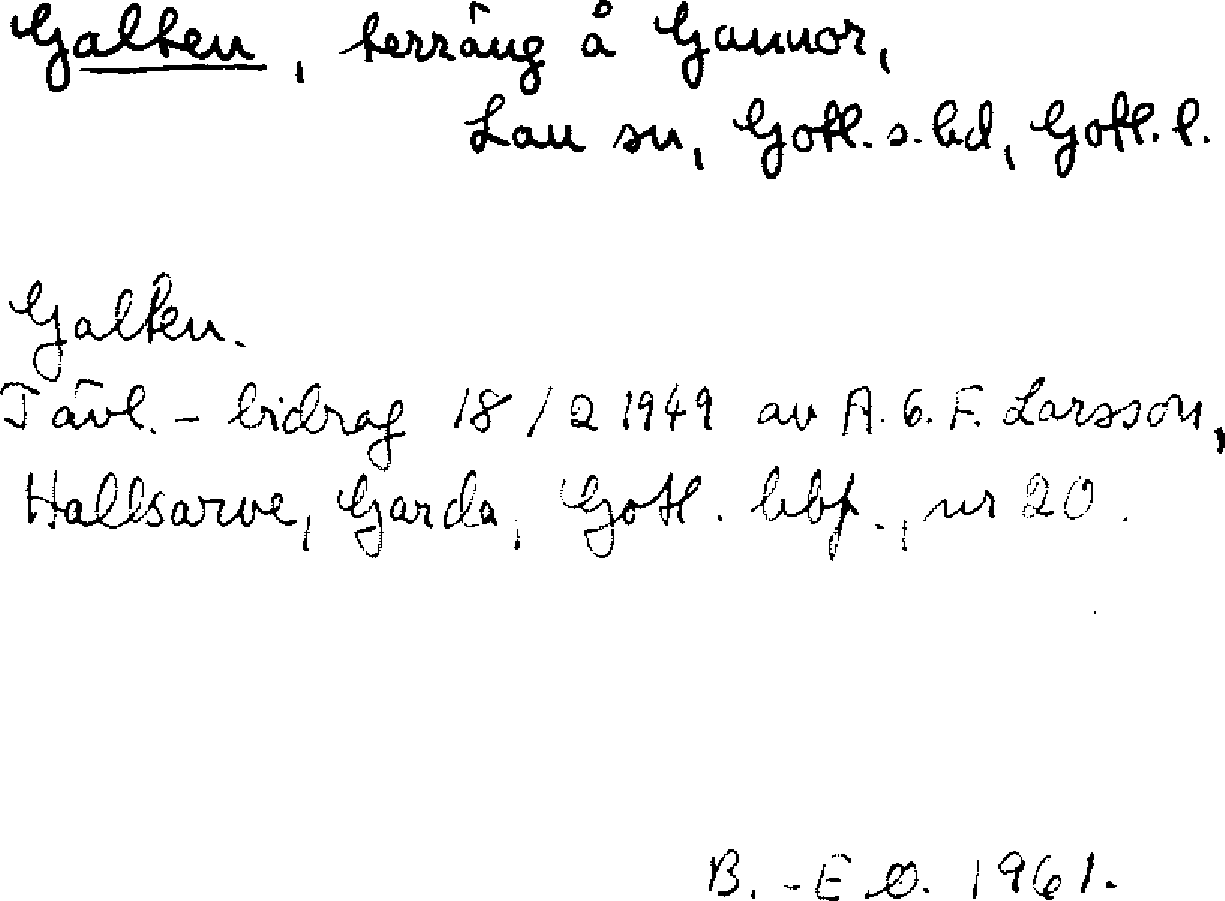 Galten, terräng å Gannor,
Lau sn, Gotl. s. hd, Gotl. l.
Galten.
Tävl. - bidrag 18/2 1949 av A. G. F. Larsson,
Hallsarve, Garda, Gotl. hbf., nr 20.
B. - E O. 1961.